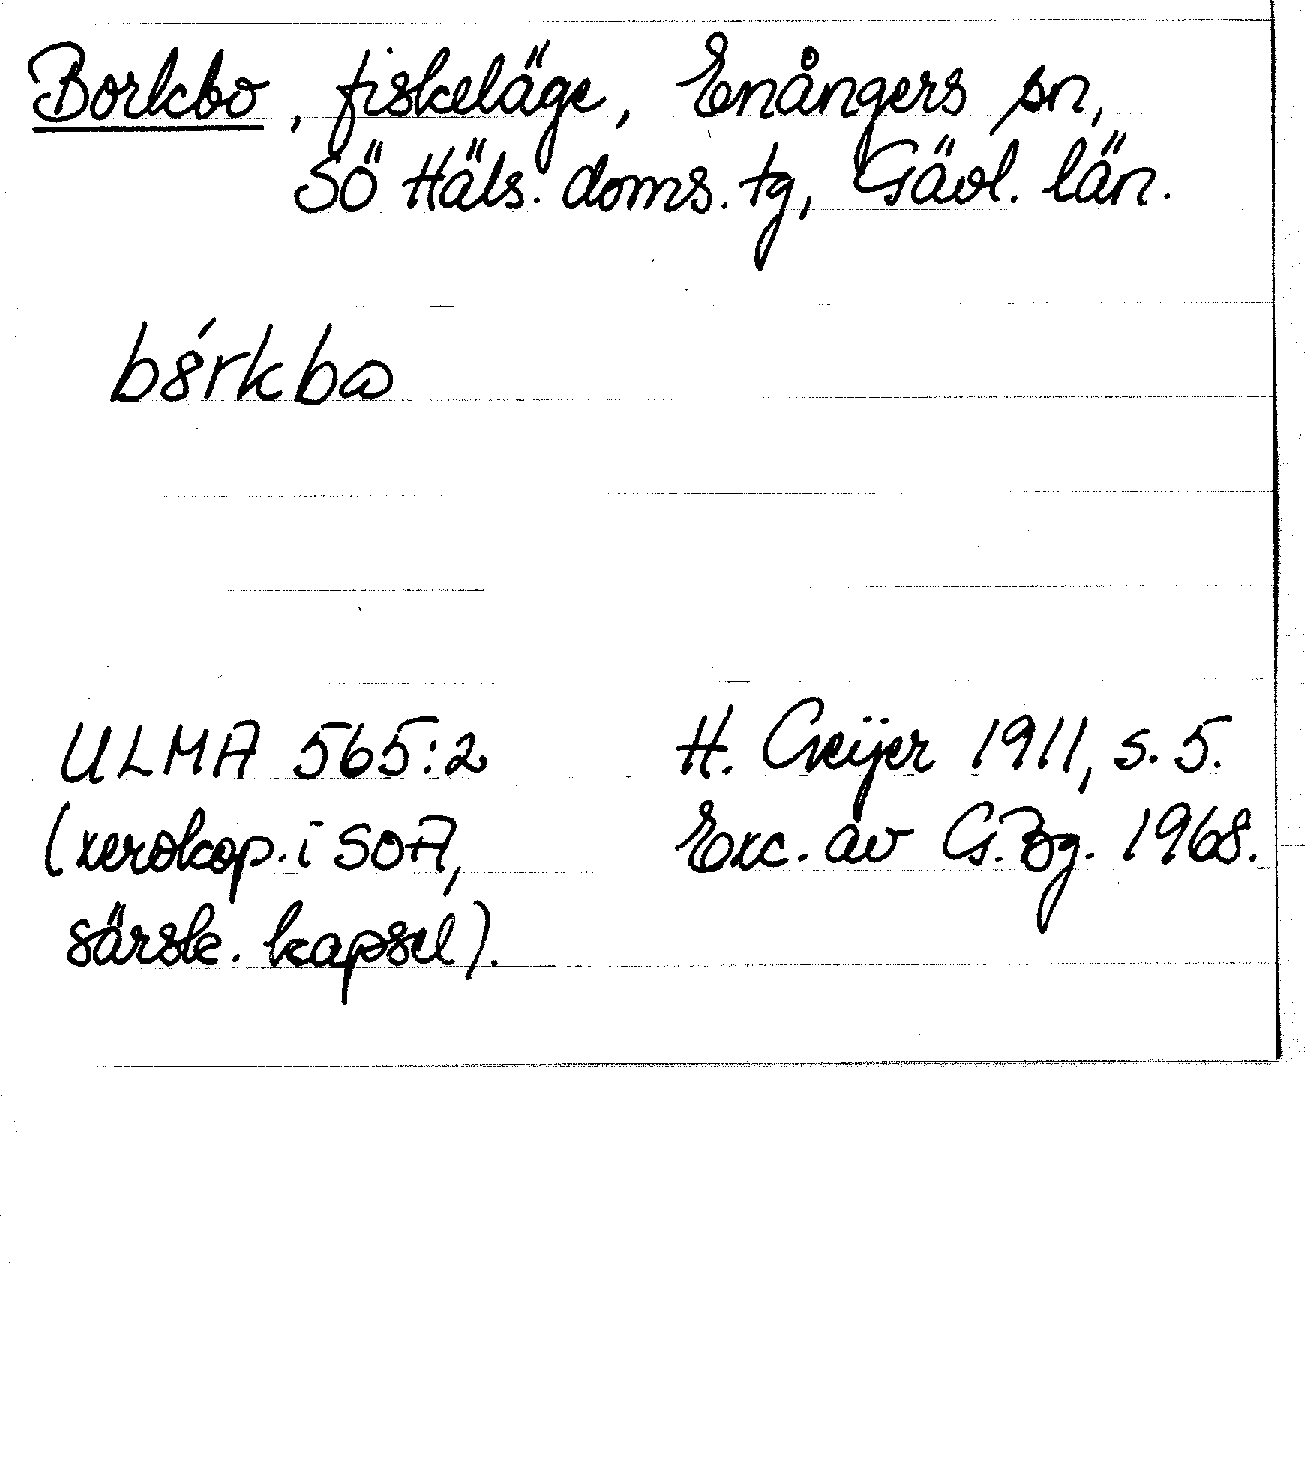 Borkbo, fiskeläge, Enångers sn,
Sö Häls. doms. tg, Gävl. län.
ULMA 565:2
(xerokop. i SOA,
särsk. kapsel).
H. Geijer 1911, s. 5.
Exc. av G. Bg. 1968.